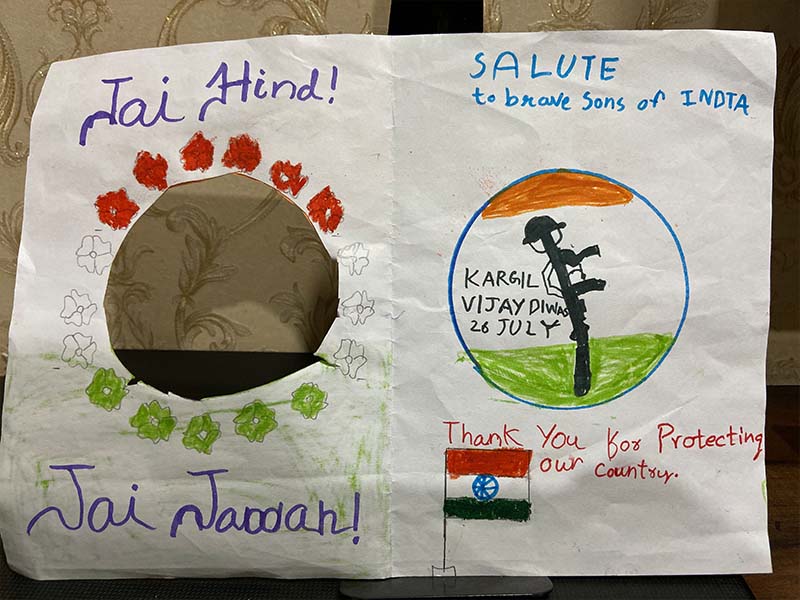 Jai Hind!
Jai Jawan!
SALUTE
to brave sons of INDIA
KARGIL
VIJAY DIWAS
26 JULY
Thank You for Protecting
our country.